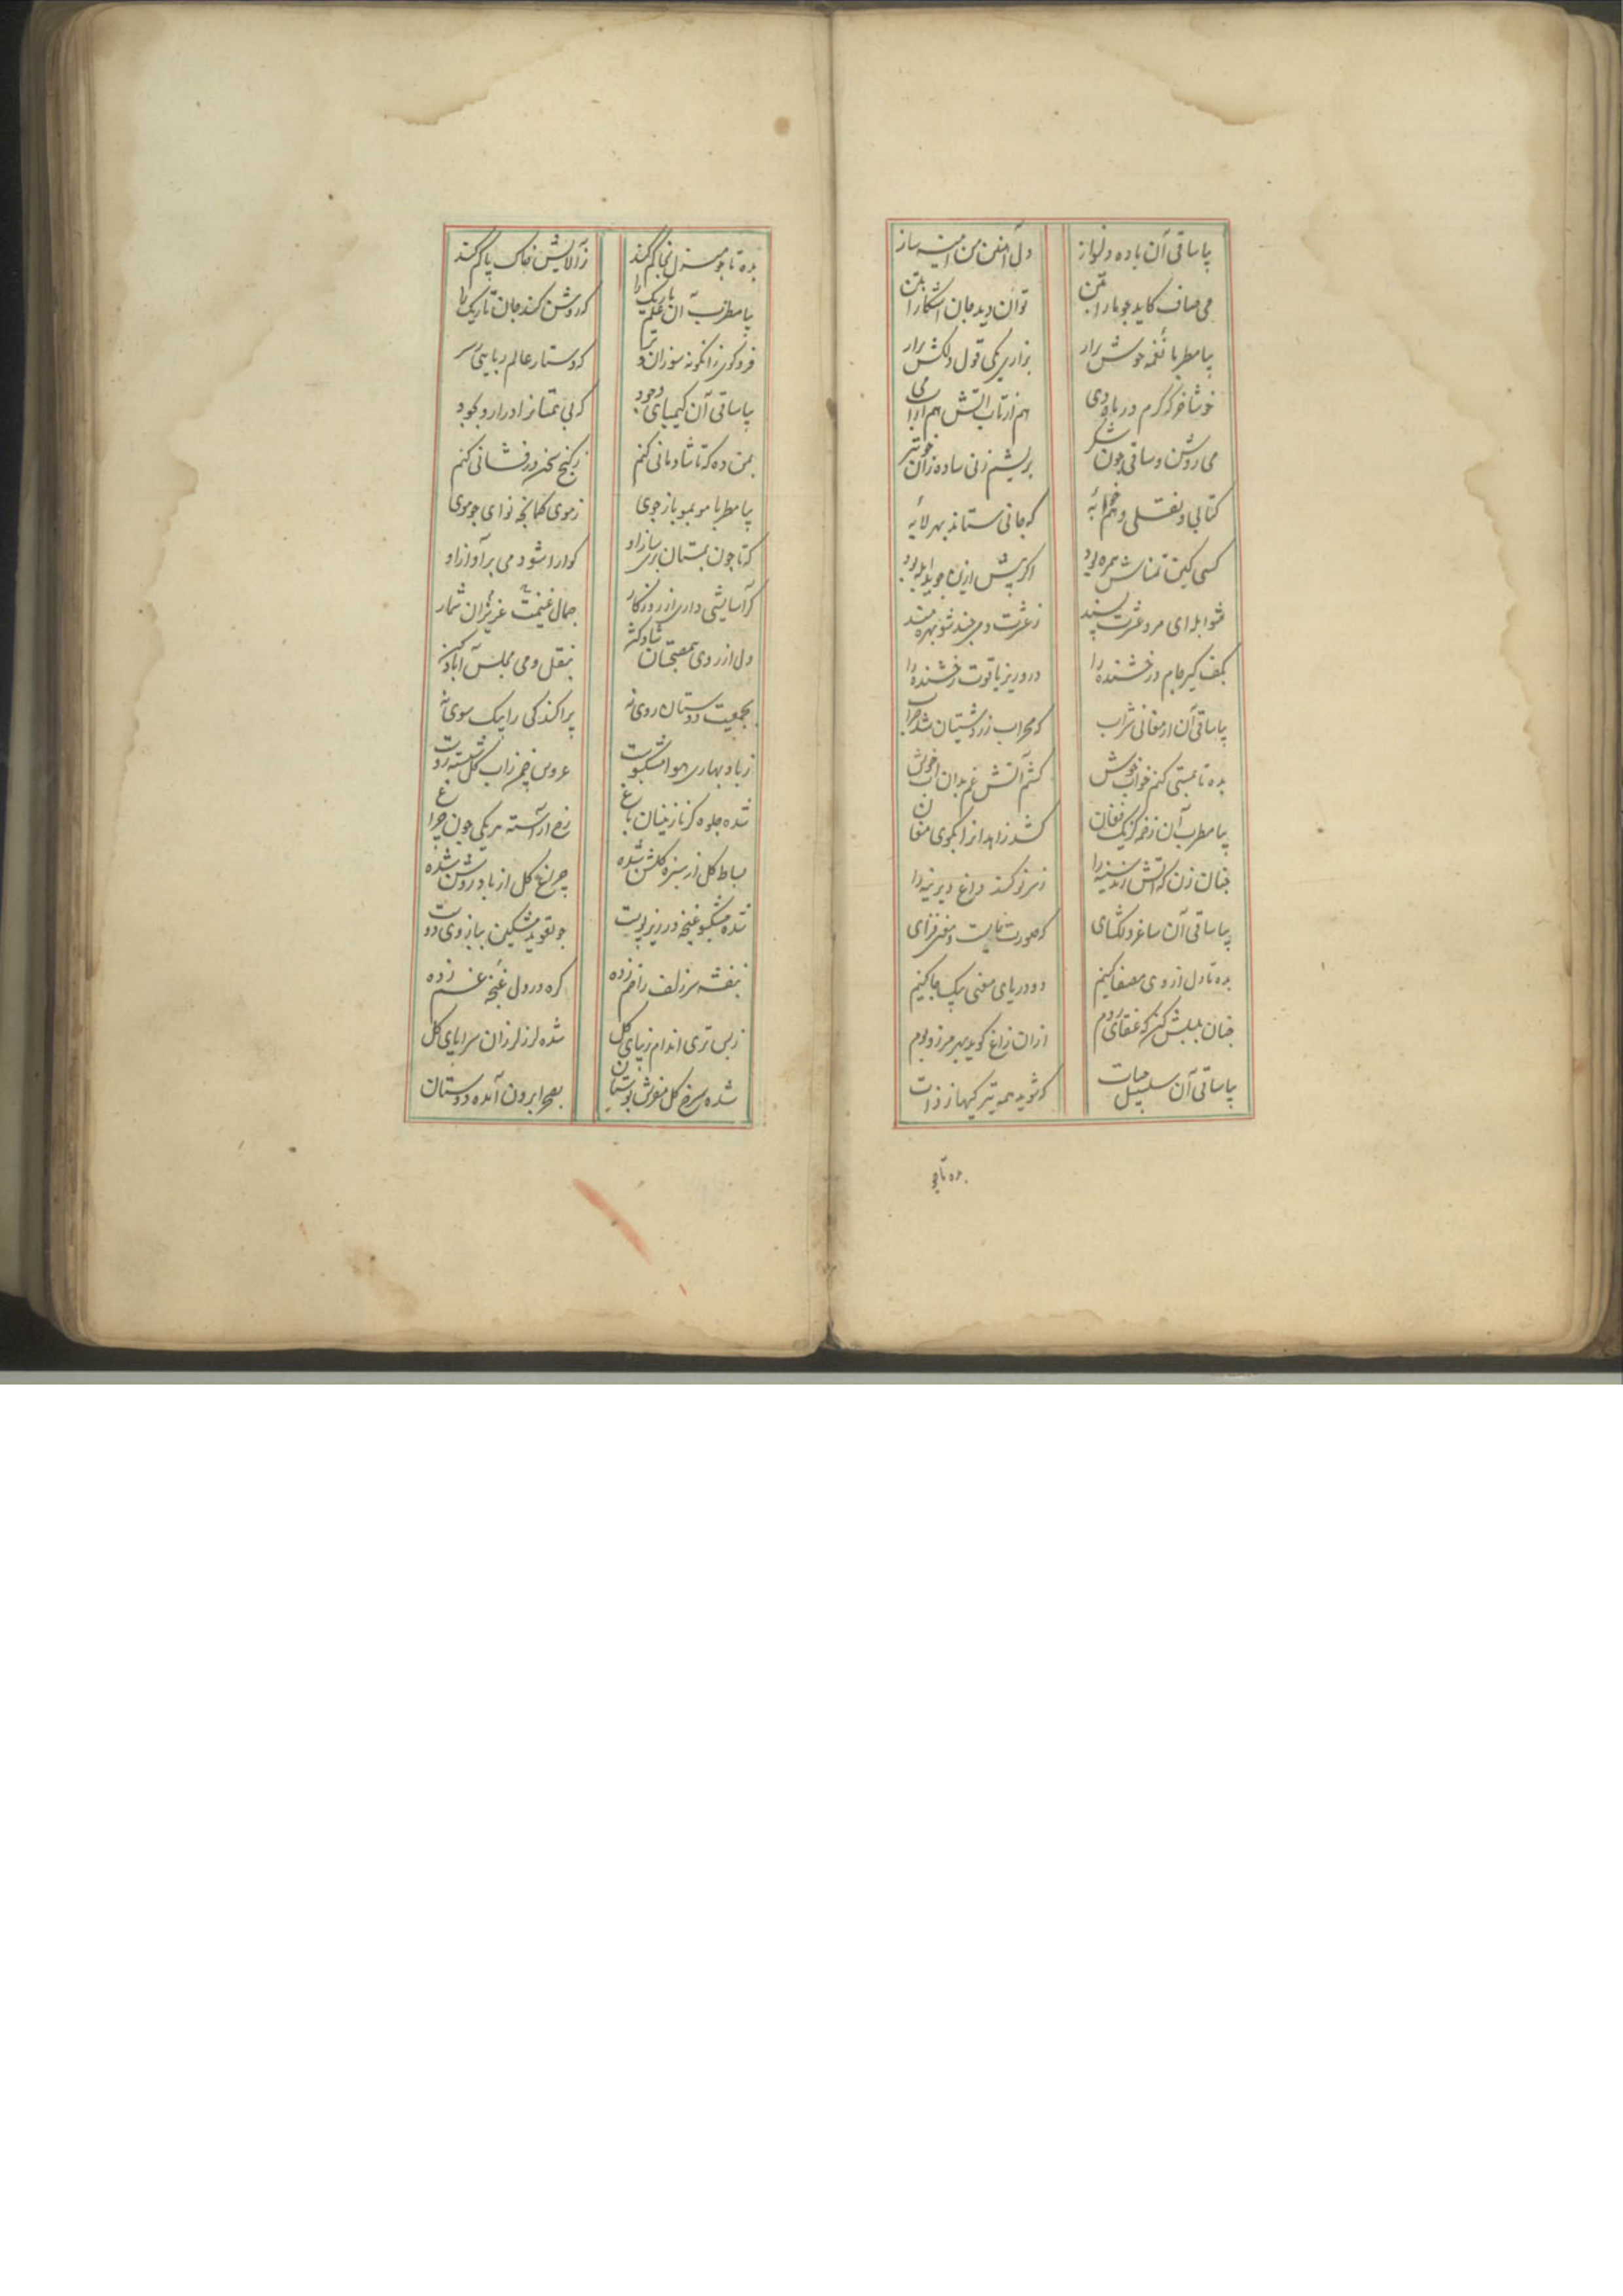 بیا ساقی آن باده دلنواز
می صاف کاید چو ما را بتن توان دید جان آشکارا بتن
بیا مطربا نغمه خوش برار بزاری یکی قول دلکش برار
خوشا خرگه گرم در ماه دی هم از تاب آتش هم از تاب می
می روشن و ساقی چون شکر بریشم زنی ساده زان خوبتر
کبابی و نقلی و که جانی ستاند بهر لابه
کسی کین تمناش همره بود اگر بیش ازین جوید ابله بود
مشو ابله ای مرد عشرت پسند ز عشرت دمی چند شو بهره مند
بکف گیر جام درخشنده را درو ریز یاقوت رخشنده را
بیا ساقی آن ارمغانی شراب که محراب زردشتیان شد خراب
بده تا بمستی کنم خواب خوش کشم آتش غم بدان آب خوش
بیا مطرب آن زخمه کز یک فغان کشد زاهدانرا بکوی مغان
چنان زن که آتش زند سینه را ز سر نو کند داغ دیرینه را
بیا ساقی آن ساغر دلگشای که صورت نمایست و معنی فزای
بده تا دل از وی مصفا کنیم دو دریای معنی بیک جا کنیم
چنان بلبلش کن که عنقای روم ازان زاغ گوید بهر مرز و بوم
بیا ساقی آن سلسبیل حیات که شوید همه تیرگیها ز ذات
بده تا چو
بده تا چو منزل بخاکم کند ز آلایش خاک پاکم کند
بیا مطرب آن علم باریک را که روشن کند جان تاریک را
فرو گو زانگونه سوزان و تر که دستار عالم ربایی ز سر
بیا ساقی آن کیمیای وجود که بی همتانرا درارد بجود
بمن ده که تا شادمانی کنم ز گنج سخن درفشانی کنم
بیا مطربا مو بمو باز جوی ز موی کمانچه نوای چو موی
که تا چون بمستان رسد ساز او گوارا شود می بر آواز او
گر آسایشی داری از روزگار جمال عزیزان غنیمت شمار
دل از روی هم صحبتان شاد کن بنقل و می مجلس آباد کن
بجمعیت دوستان روی نه پراکندگی را بیک سوی نه
ز باد بهاری هوا مشکبوست عروس چمن زاب گل شسته روست
شده جلوه گر نازنینان باغ رخ آراسته هر یکی چون چراغ
بساط گل از سبزه گلشن شده چراغ گل از باد روشن شده
شده مشکبو غنچه در زیر پوست چو تعویذ مشکین ببازوی دوست
بنفشه سر زلف را خم زده گره در دل غنچه غم زده
ز بس تری اندام زیبای گل شده لرز لرزان سراپای گل
شده سرخ گل مفرش بوستان بصحرا برون آمده دوستان